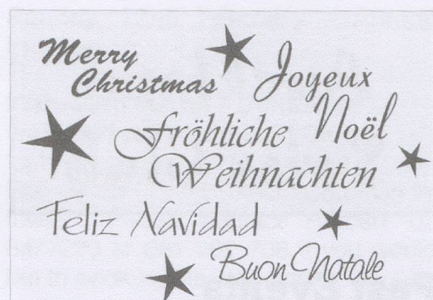 Merry
Christmas
Joyeux
Noël
Fröhliche
Weihnachten
Feliz Navidad
Buon Natale